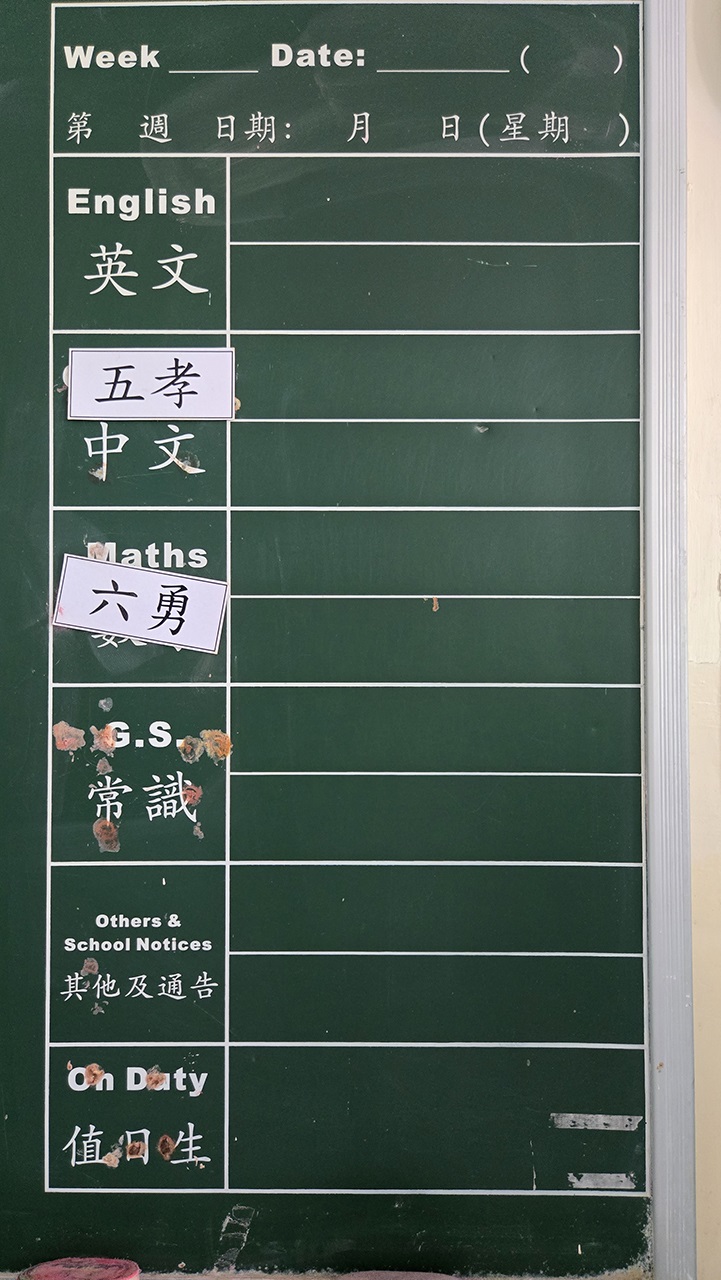 Week _____ Date: ________ (        )
第 週 日期: 月 日(星期 )
English
英文
五孝
中文
Maths
六勇
G.S.
常識
Others &
School Notices
其他及通告
On Duty
值日生